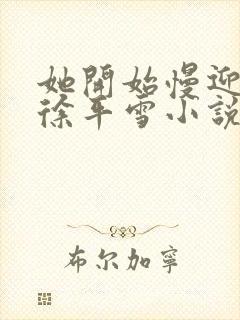 她開始慢迎
徐平雪小說
布尔加寧